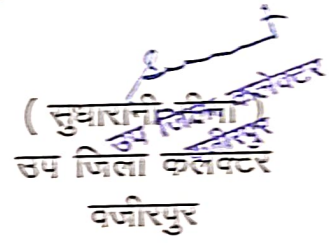 ( सुधारानी मीना )
उप जिला कलेक्टर
वजीरपुर
उप जिला कलेक्टर
वजीरपुर